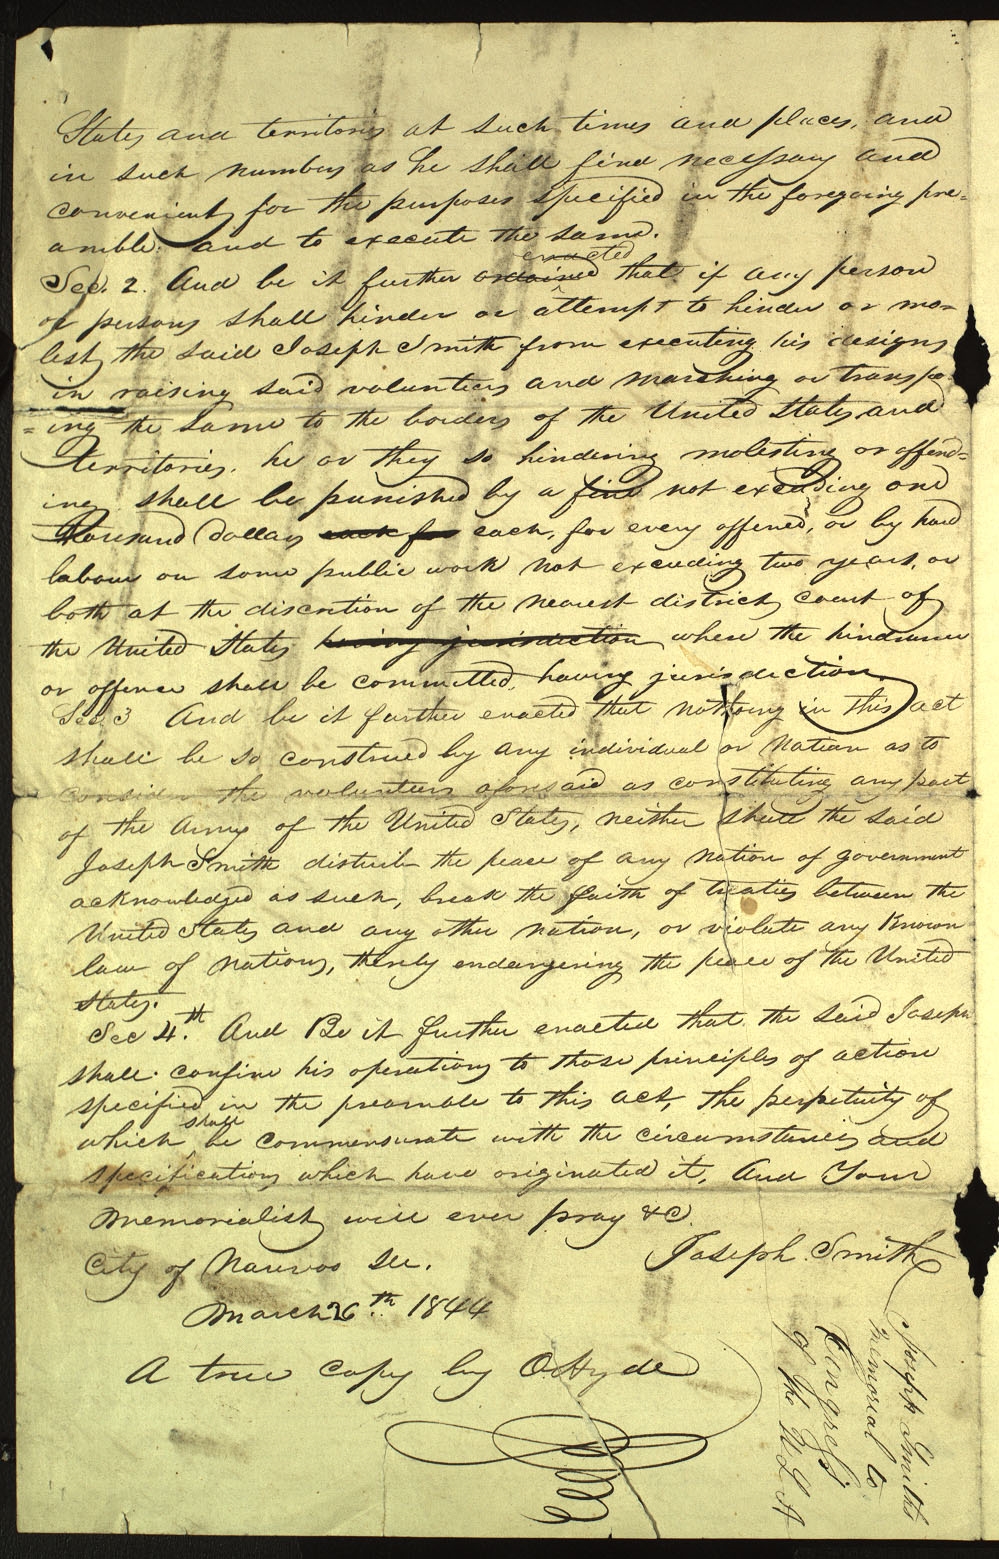 States and territories at such times and places, and
in such numbers as he shall find necessary and
convenient for the purposes specified in the foregoing pre=
amble: and to execute the same.
enacted
Sec. 2. And be it further ordained that if any person
or persons shall hinder or attempt to hinder or mo=
lest the said Joseph Smith from executing his designs
in raising said volunteers and marching or transpo
=ing the same to the borders of the United States and
Territories. he or they so hindering molesting or offend=
ing shall be punished by a fine not exceeding one
thousand dollars each for each, for every offence, or by hard
labour on some public work not exceeding two years, or
both at the discretion of the nearest district court of
the United States having jurisdiction where the hindrance
or offence shall be committed, having jurisdiction.
Sec 3 And be it further enacted that nothing in this act
shall be so construed by any individual or nation as to
consider the volunteers aforesaid as constituting any part
of the Army of the United States, neither shall the said
Joseph Smith disturb the peace of any nation of government
acknowledged as such, break the faith of treaties between the
United States and any other nation, or violate any known
law of nations, thereby endangering the peace of the United
States.
Sec 4.th And Be it further enacted that the said Joseph
shall confine his operations to those principles of action
specified in the preamble to this act, the perpetuity of
shall
which be commensurate with the circumstances and
specifications which have originated it, And Your
memorialist will ever pray &c.
Joseph Smith
City of Nauvoo Ill.
March 26th 1844
A true copy by O. Hyde
Joseph Smiths
memorial to
Congress
of the U S A